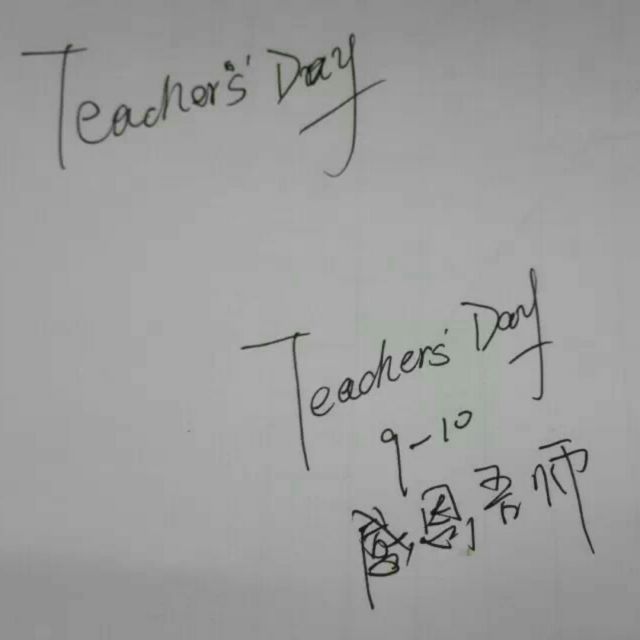 Teachers' Day
Teachers' Day
9-10
感恩吾师